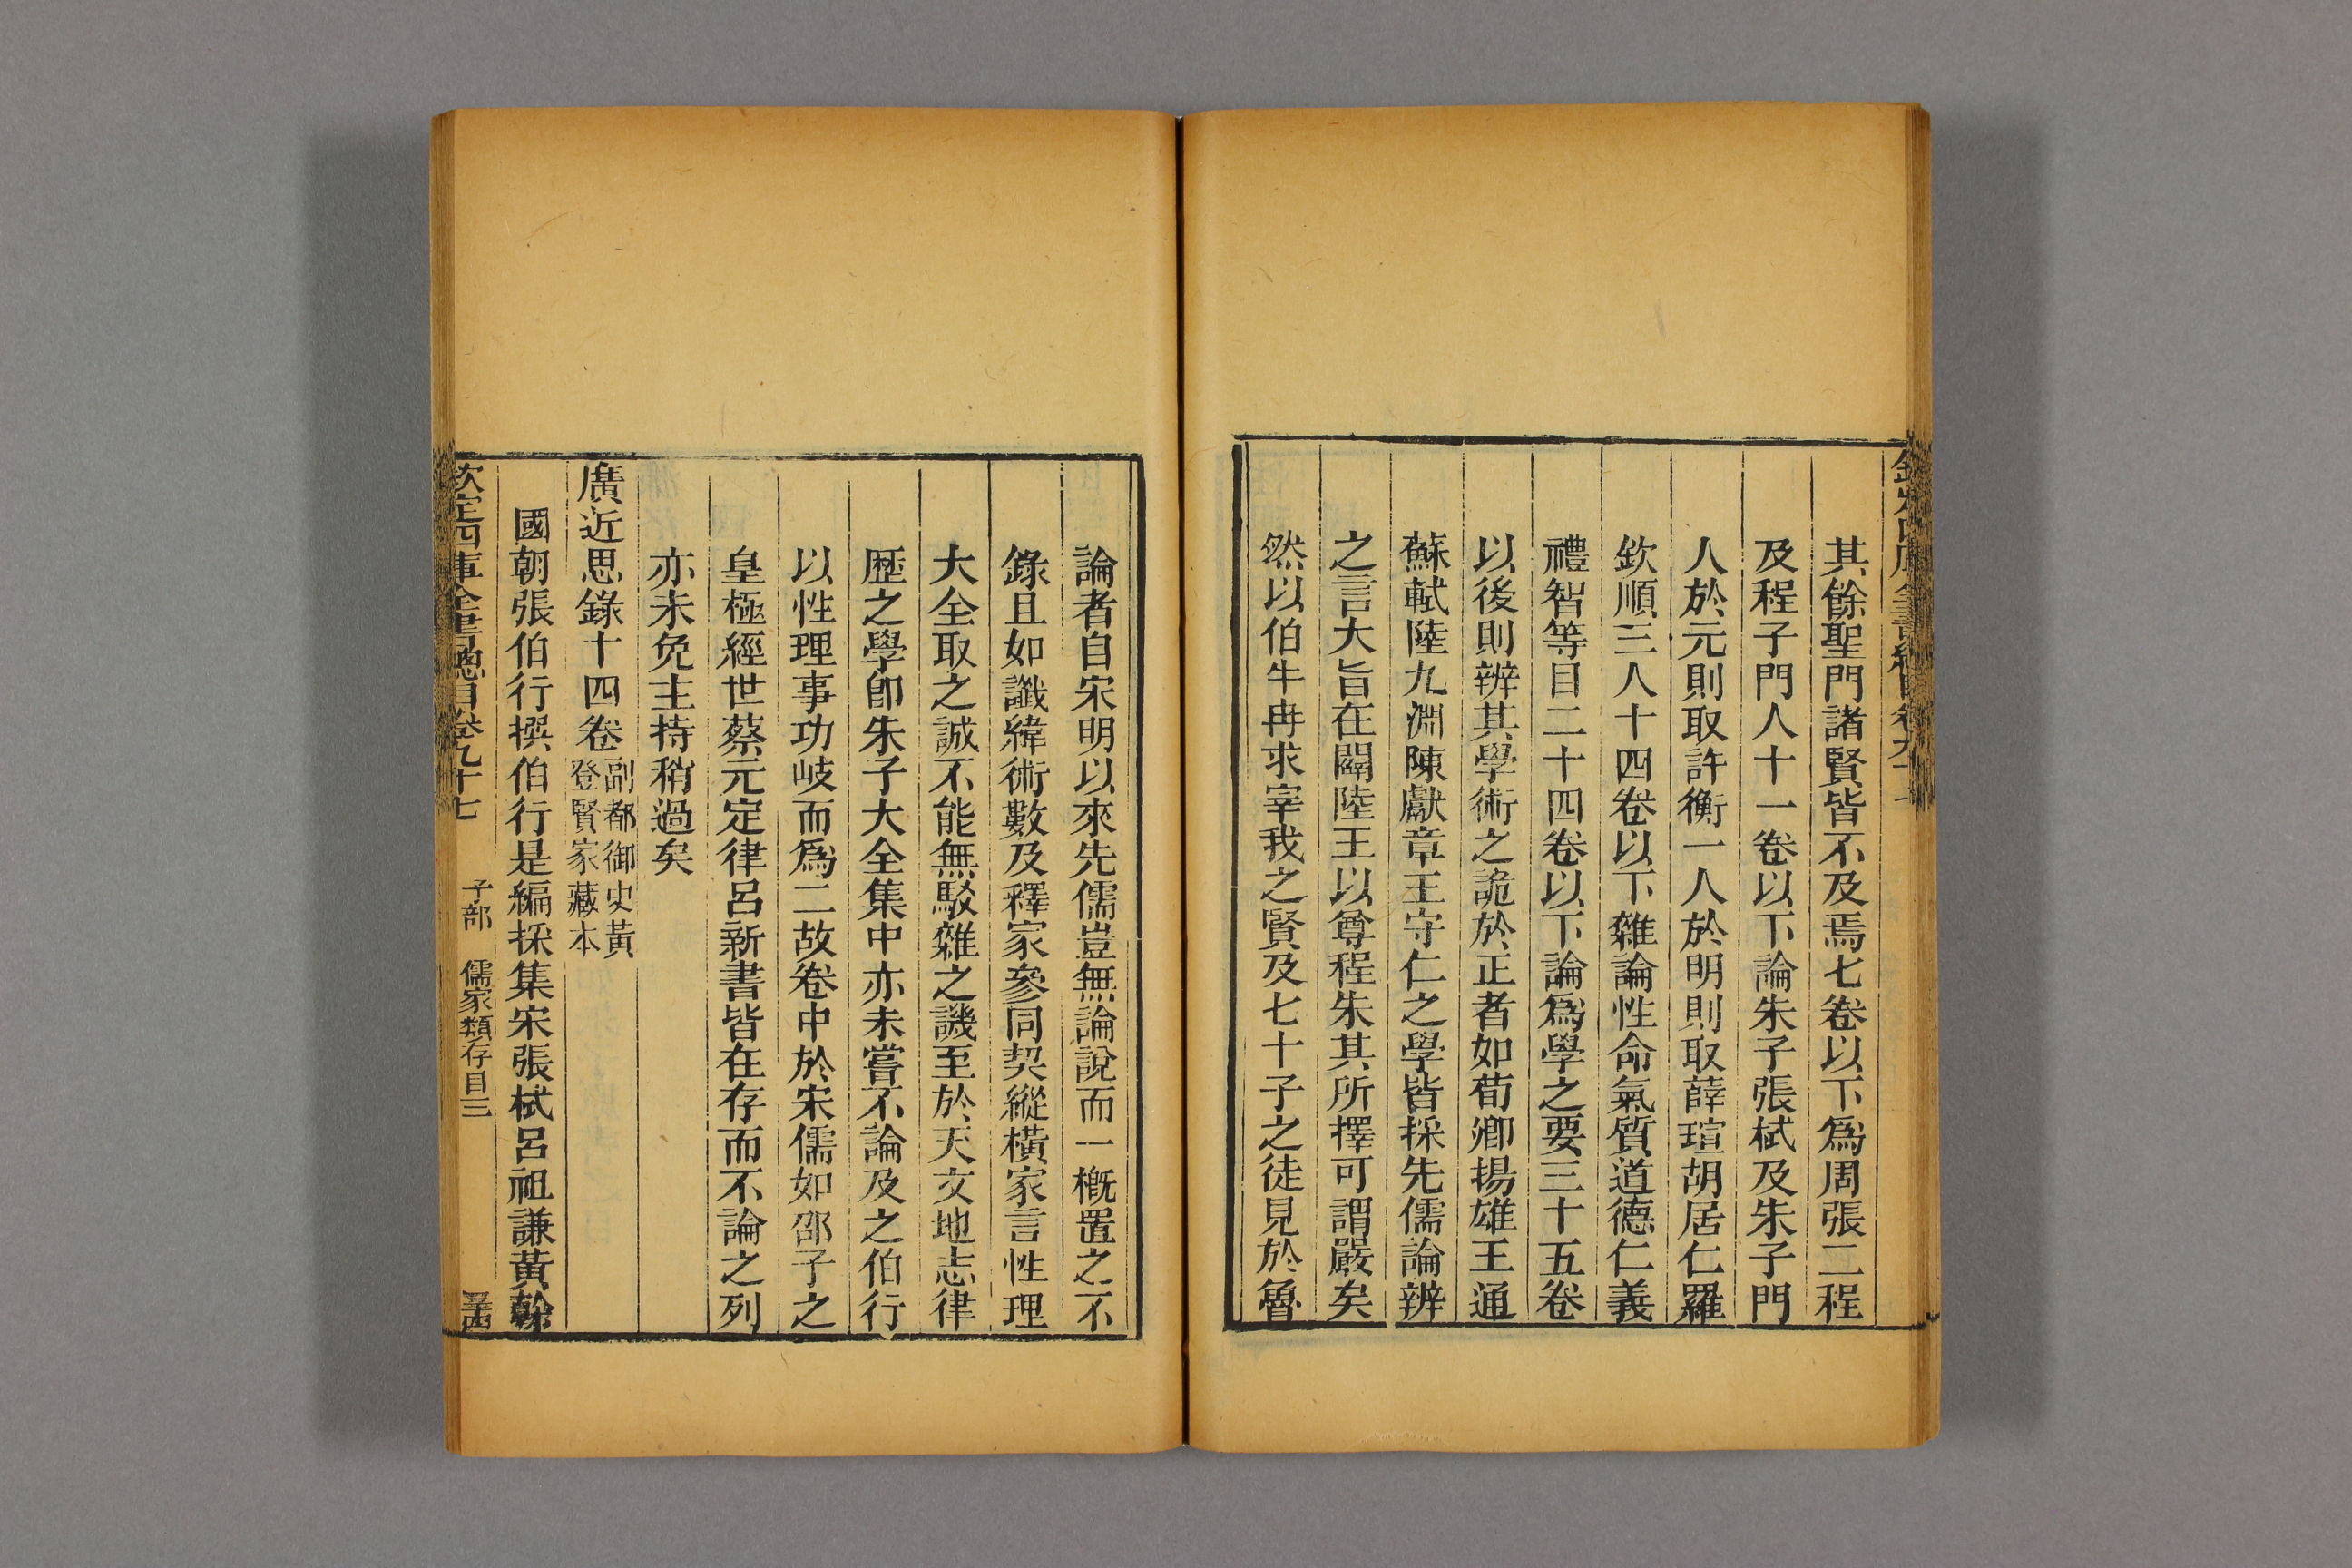 其餘聖門諸賢皆不及焉七卷以下爲周張二程
及程子門人十一卷以下論朱子張栻及朱子門
人於元則取許衡一人於明則取薛瑄胡居仁羅
欽順三人十四卷以下雜論性命氣質道德仁義
禮智等目二十四卷以下論爲學之要三十五卷
以後則辨其學術之詭於正者如荀卿揚雄王通
蘇軾陸九淵陳獻章王守仁之學皆採先儒論辨
之言大旨在闢陸王以尊程朱其所擇可謂嚴矣
然以伯牛冉求宰我之賢及七十子之徒見於魯
論者自宋明以來先儒豈無論說而一槪置之不
錄且如讖緯術數及釋家參同契縱橫家言性理
大全取之誠不能無駁雜之譏至於天文地志律
歷之學卽朱子大全集中亦未嘗不論及之伯行
以性理事功岐而爲二故卷中於宋儒如邵子之
皇極經世蔡元定律呂新書皆在存而不論之列
亦未免主持稍過矣
廣近思錄十四卷副都御史黃
登賢家藏本
國朝張伯行撰伯行是編採集宋張栻呂祖謙黃榦
欽定四庫全書總目卷九十七 子部 儒家類存目三